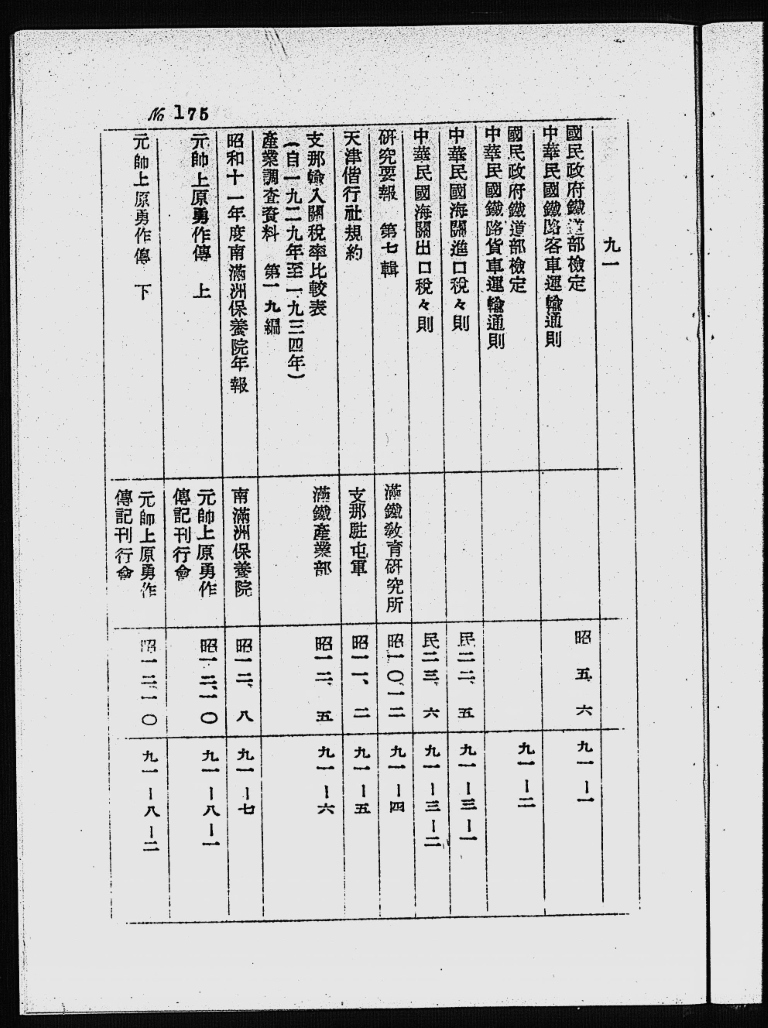 № 175
九一
國民政府鐵道部檢定
中華民國鐵路客車運輸通則
昭 五、六
九一ー一
國民政府鐵道部檢定
中華民國鐵路貨車運輸通則
九一ー二
中華民國海關進口稅々則
民二二、五
九一ー三ー一
中華民國海關出口稅々則
民二三、六
九一ー三ー二
研究要報 第七輯
滿鐵敎育研究所
昭一〇、一二
九一ー四
天津偕行社規約
支那駐屯軍
昭一一、二
九一ー五
支那輸入關稅率比較表
(自一九二九年至一九三四年)
產業調查資料 第一九編
滿鐵產業部
昭一二、五
九一ー六
昭和十一年度南滿洲保養院年報
南滿洲保養院
昭一二、八
九一ー七
元帥上原勇作傳 上
元帥上原勇作
傳記刊行會
昭一二、一〇
九一ー八ー一
元帥上原勇作傳 下
元帥上原勇作
傳記刊行會
昭一二、一〇
九一ー八ー二